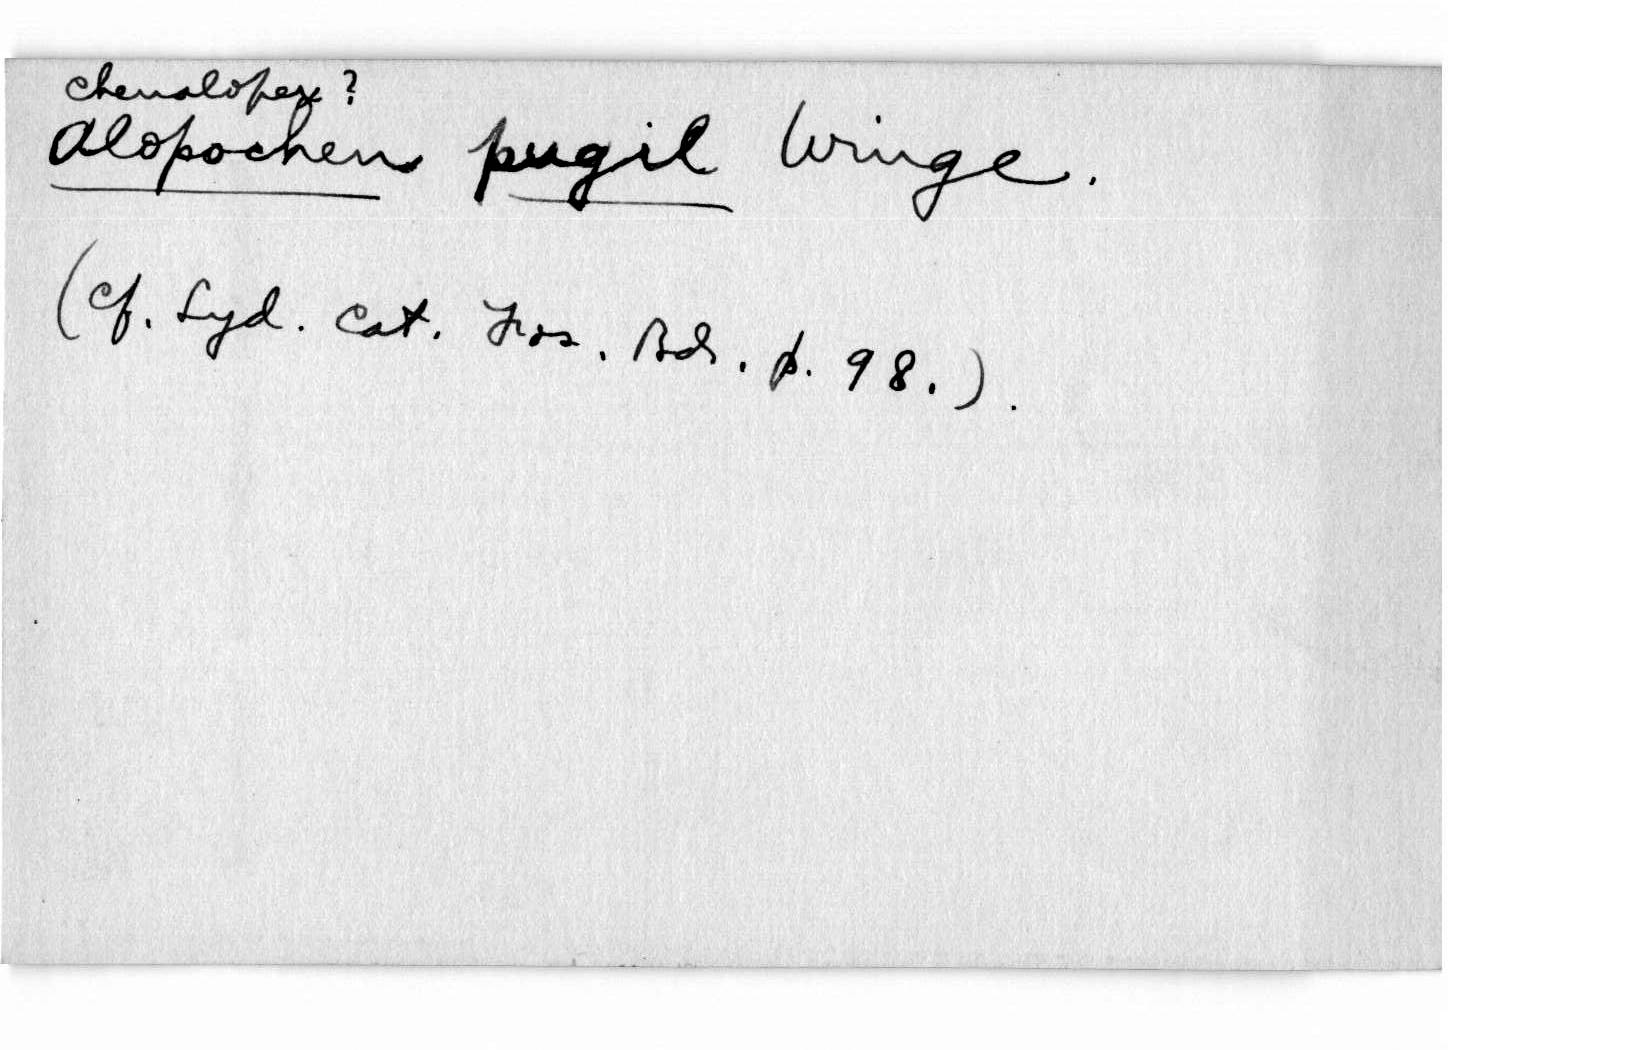 Chenalopex?
Alopochen pugil Winge.
(Cf. Lyd. Cat. Fos. Bds. p. 98.).